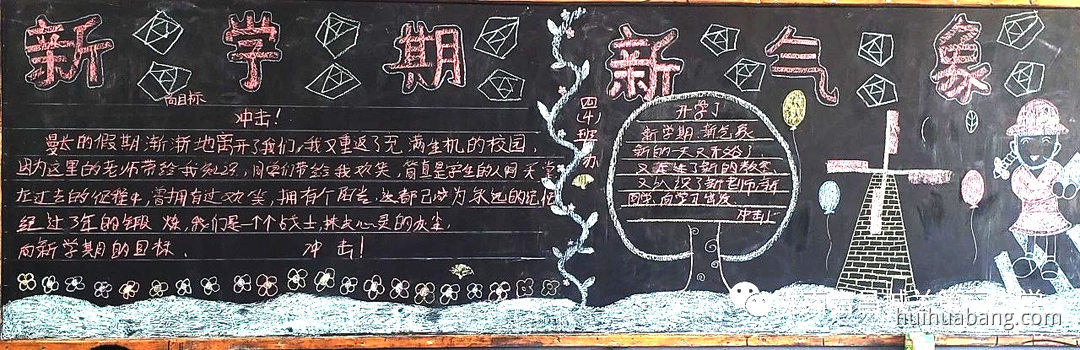 新学期 新气象
向目标
冲击！
漫长的假期渐渐地离开了我们，我又重返了充满生机的校园，
因为这里的老师带给我知识，同学们带给我欢笑，简直是学生的人间天堂
在过去的征程中，曾拥有过欢笑，拥有个 都已成为永远的记忆
经过了年的锻炼，我们是一个个战士，抹去心灵的灰尘，
向新学期的目标， 冲击！
四(4)班办
开学了
新学期，新气象
新的一天又开始了
又迎来了新的教室
又认识了新老师，新
同学，向学习出发
冲击！
huihuabang.com